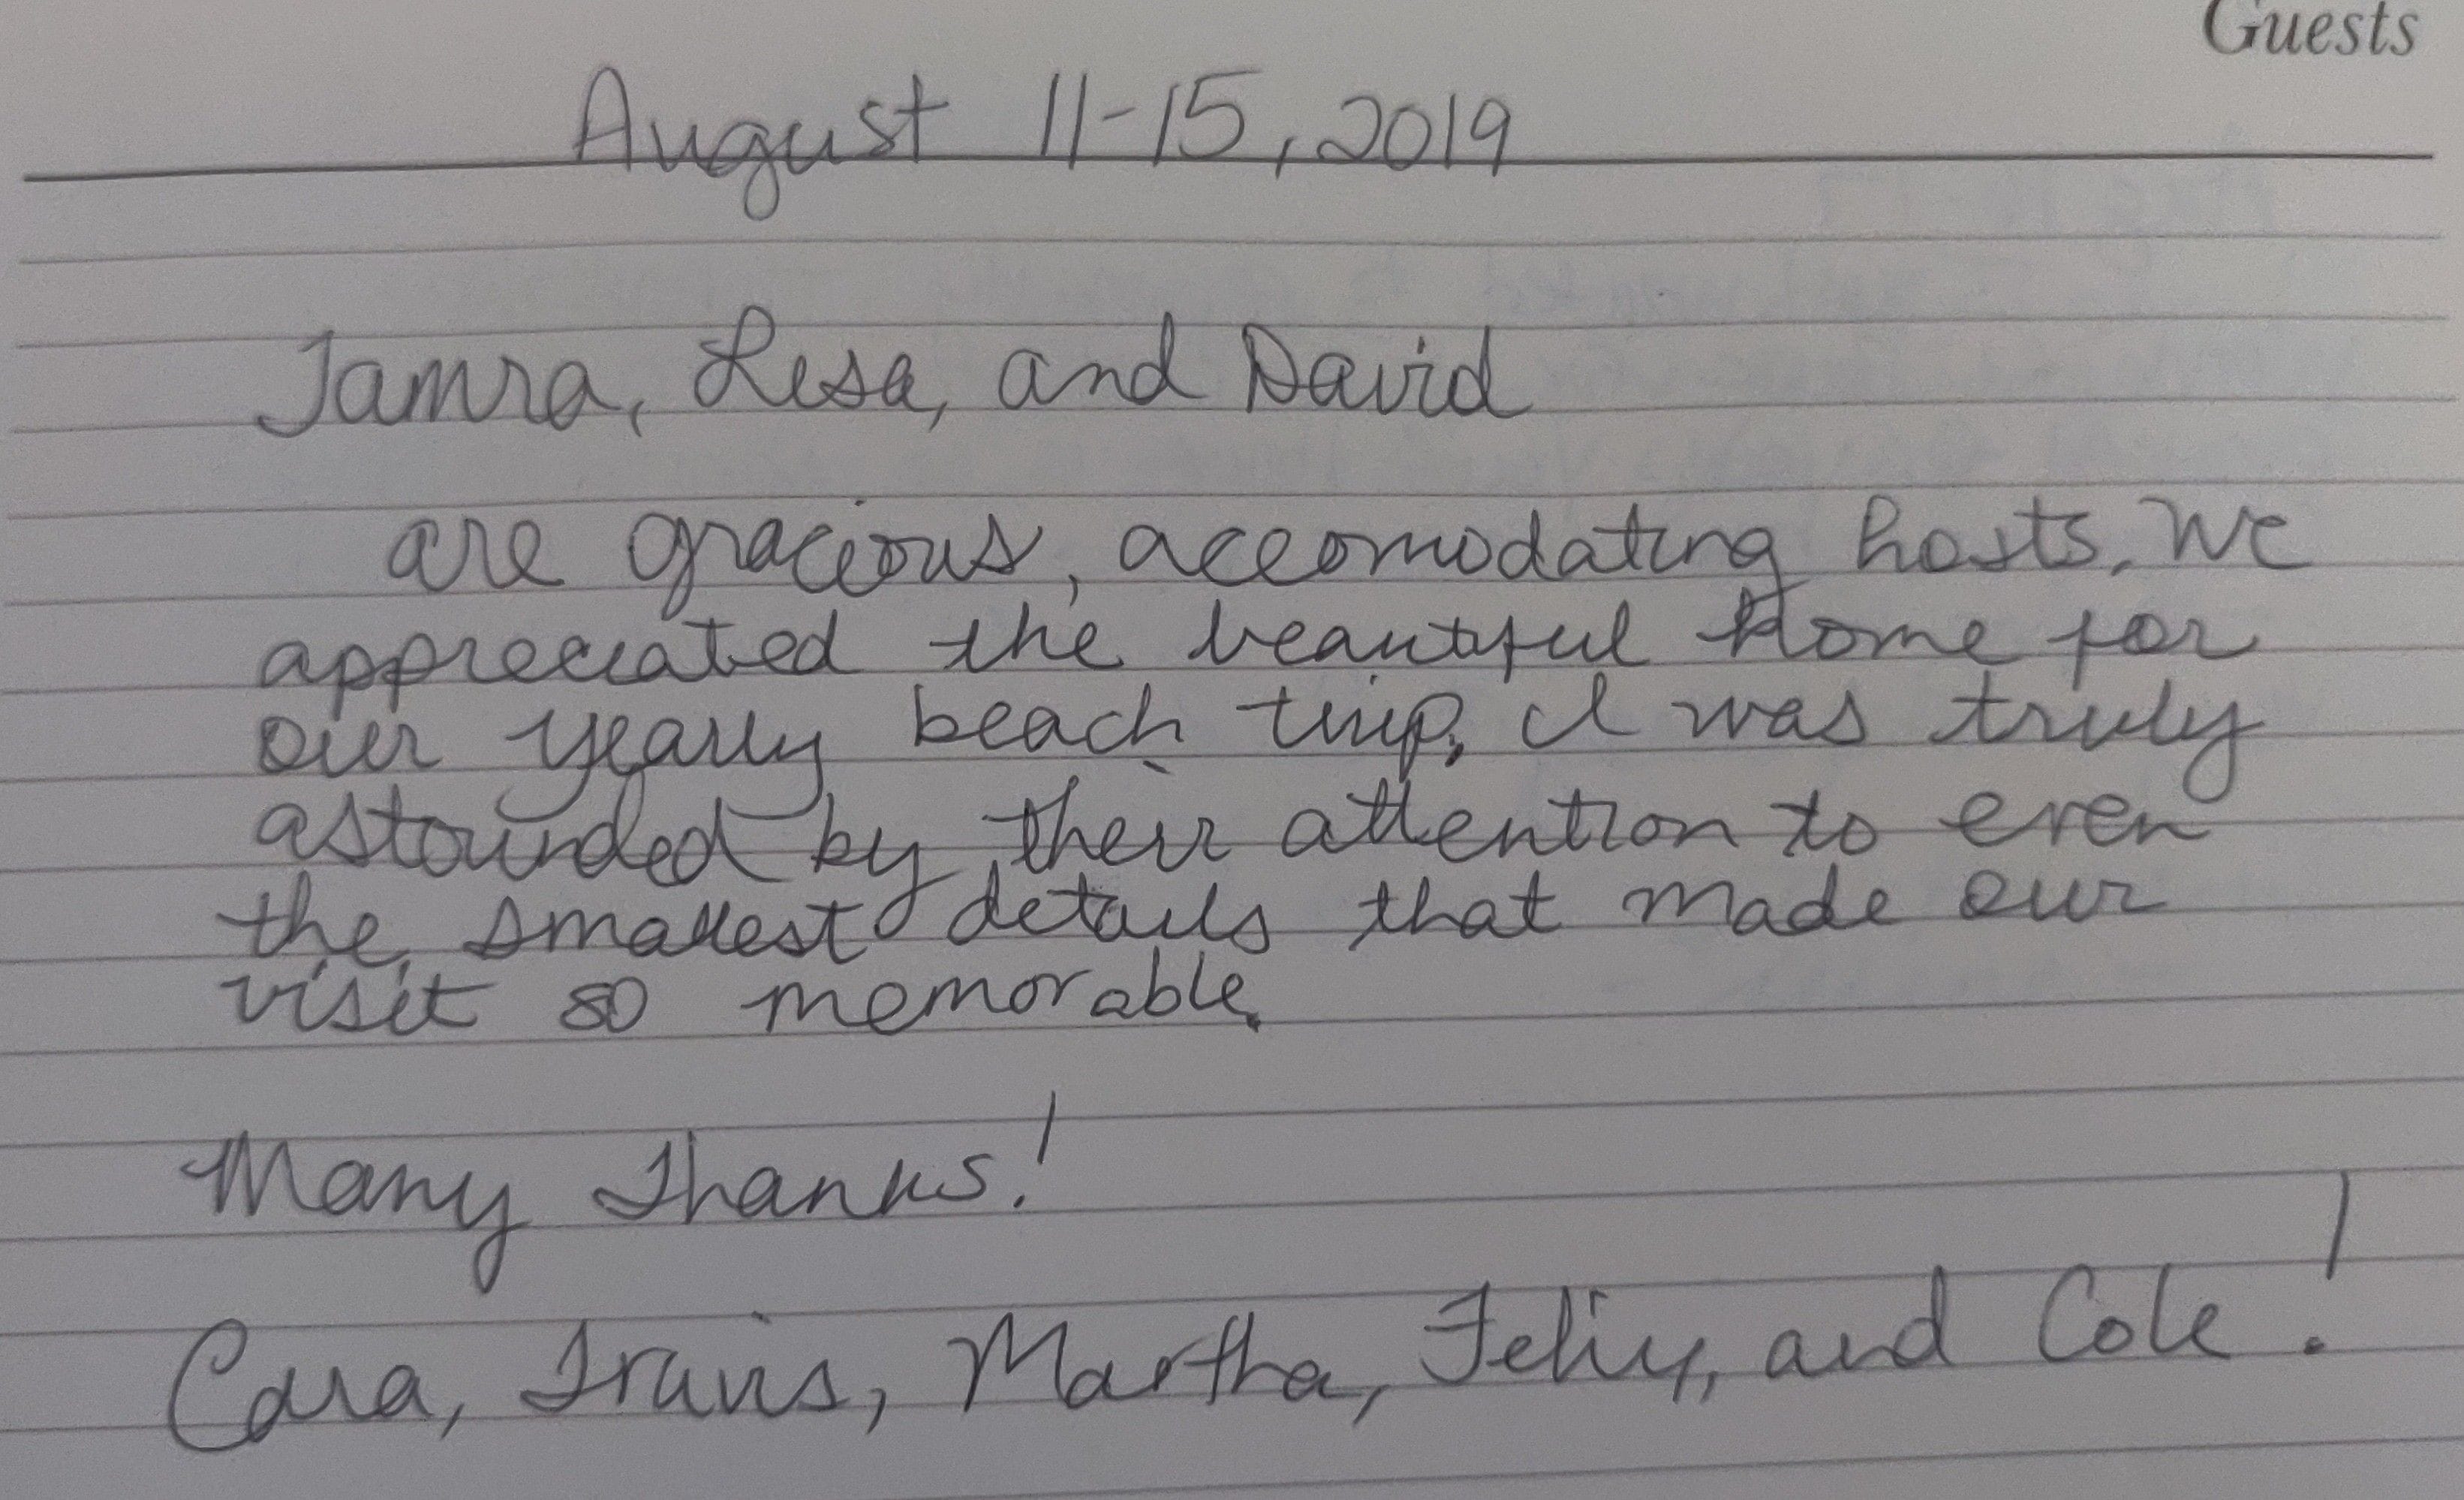 Guests
August 11-15, 2019
Tamra, Lisa, and David
are gracious, accomodating hosts. We
appreciated the beautiful home for
our yearly beach trip. I was truly
astounded by their attention to even
the smallest details that made our
visit so memorable.
Many Thanks!
Cara, Travis, Martha, Felix, and Cole!